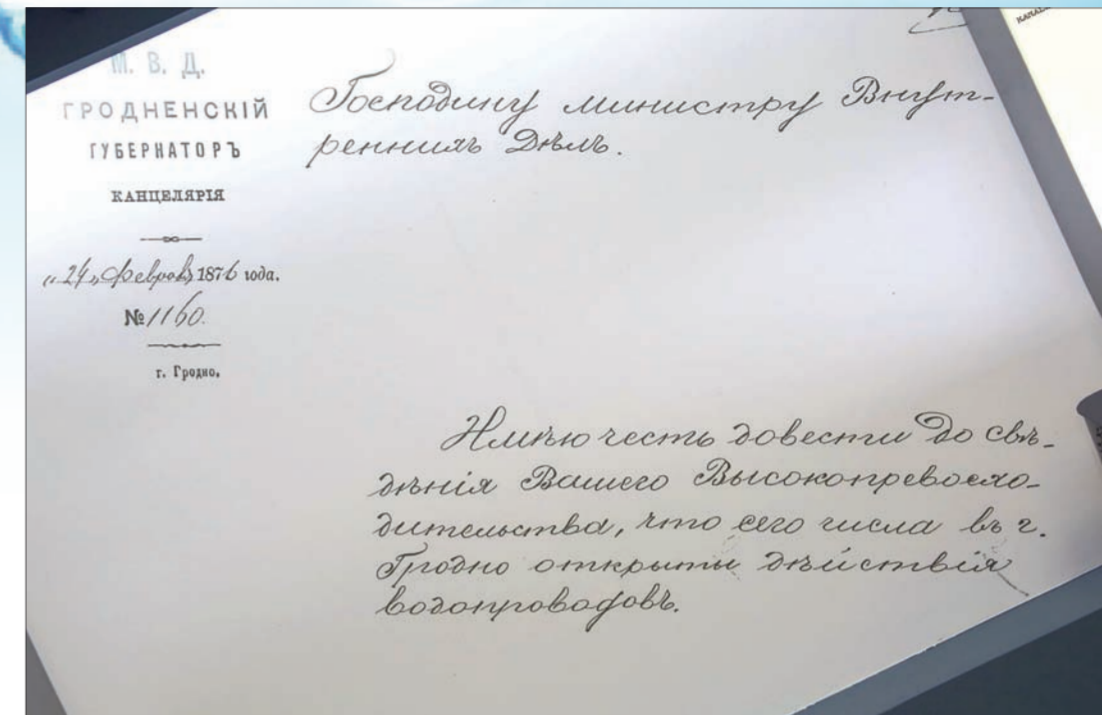 М. В. Д.
ГРОДНЕНСКІЙ
ГУБЕРНАТОРЪ
КАНЦЕЛЯРІЯ
„24„ Феврал 1876 года.
№ 1160.
г. Гродно.
Господину Министру Внут-
реннихъ Дѣлъ.
Имѣю честь довести до свѣ-
дѣнія Вашего Высокопревосхо-
дительства, что сего числа въ г.
Гродно открыты дѣйствія
водопроводовъ.